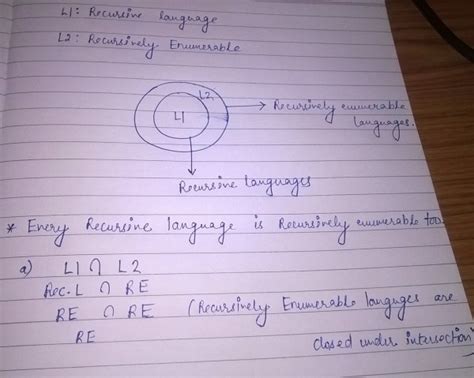 L1: Recursive language
L2: Recursively Enumerable
L2
L1
Recursively enumerable
languages.
Recursive languages
* Every Recursive language is Recursively enumerable too.
a) L1 ∩ L2
Rec. L ∩ RE
RE ∩ RE (Recursively Enumerable languges are
RE closed under intersection